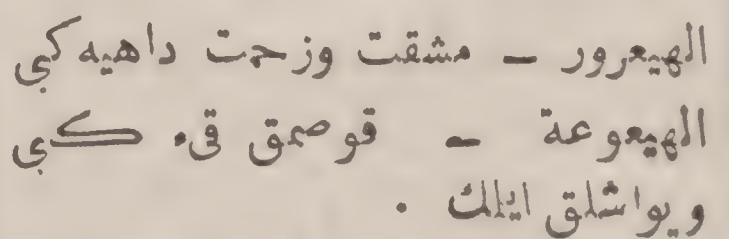 الهيعرور ـ مشقت وزحمت داهيه كبى
الهيعوعة ـ قوصمق قىء كبى
و يواشلق ايلك .